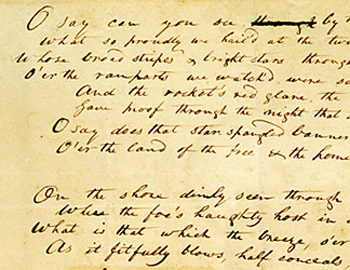 O say can you see through by
What so proudly we hail'd at the
Whose broad stripes & bright stars through
O'er the ramparts we watch'd were so
And the rocket's red glare, the
Gave proof through the night that
O say does that star-spangled banner
O'er the land of the free & the home
On the shore dimly seen through
Where the foe's haughty host in
What is that which the breeze, o'er
As it fitfully blows, half conceals